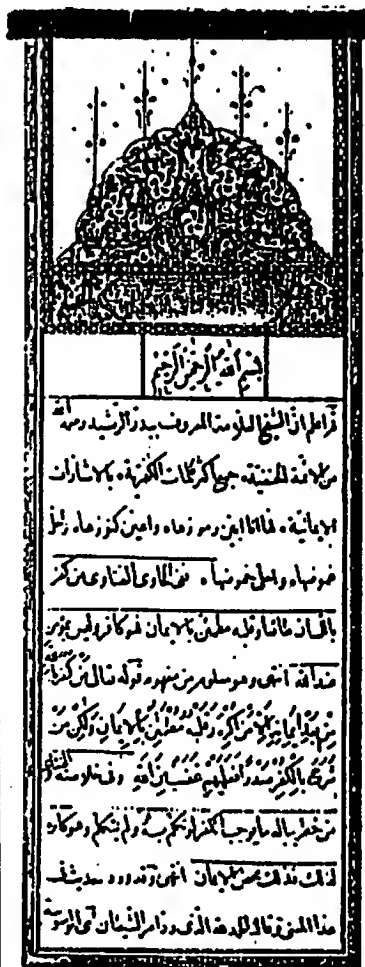 بسم الله الرحمن الرحيم
اعلم ان الشيخ العلامة المعروف ببدر الرشيد رحمه الله
من الائمة الحنفية، جمع اكثر كلمات الكفرية، بالاشارات
الايمانية، فها انا ابين رموزها، واعين كنوزها، واحل
غموضها، ففي الحاوى الفتاوى من كفر
باللسان طائعا وقلبه مطمئن بالايمان فهو كافر وليس بمؤمن
عند الله انتهى وهو معلوم من مفهوم قوله تعالى من كفر بالله
من بعد ايمانه الا من اكره وقلبه مطمئن بالايمان ولكن من
شرح بالكفر صدرا فعليهم غضب من الله وفى خلاصة الفتاوى
من خطر بباله ما يوجب الكفر لو تكلم به ولم يتكلم وهو كاره
لذلك فذلك محض الايمان انتهى وقد ورد حديث فى
هذا المعنى وقال الحمد لله الذى رد امر الشيطان الى الوسوسة